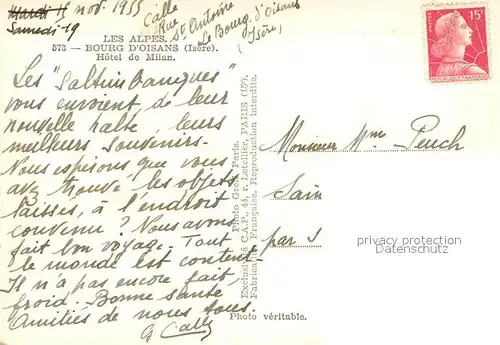 Mardi 15 nov. 1955
Samedi 19
Calle
Rue St Antoine
Le Bourg d'Oisans
(Isère)
LES ALPES.
573 — BOURG D'OISANS (Isère).
Hôtel de Milan.
Les "Saltimbanques"
vous envoient de leur
nouvelle halte, leurs
meilleurs souvenirs.
Nous espérons que vous
avez trouvé les objets
laissés, à l'endroit
convenu ? Nous avons
fait bon voyage. Tout
le monde est content
Il n'a pas encore fait
froid. Bonne santé
Amitiés de nous tous.
Photo véritable.
Photo Gros, Paris.
Exclusivité C.A.P., 44, r. Letellier, PARIS (15e).
Fabrication Française. Reproduction interdite.
POSTES
15F
REPUBLIQUE FRANÇAISE
Monsieur Mme Peuch
Sain
par S
privacy protection
DatenSchutz